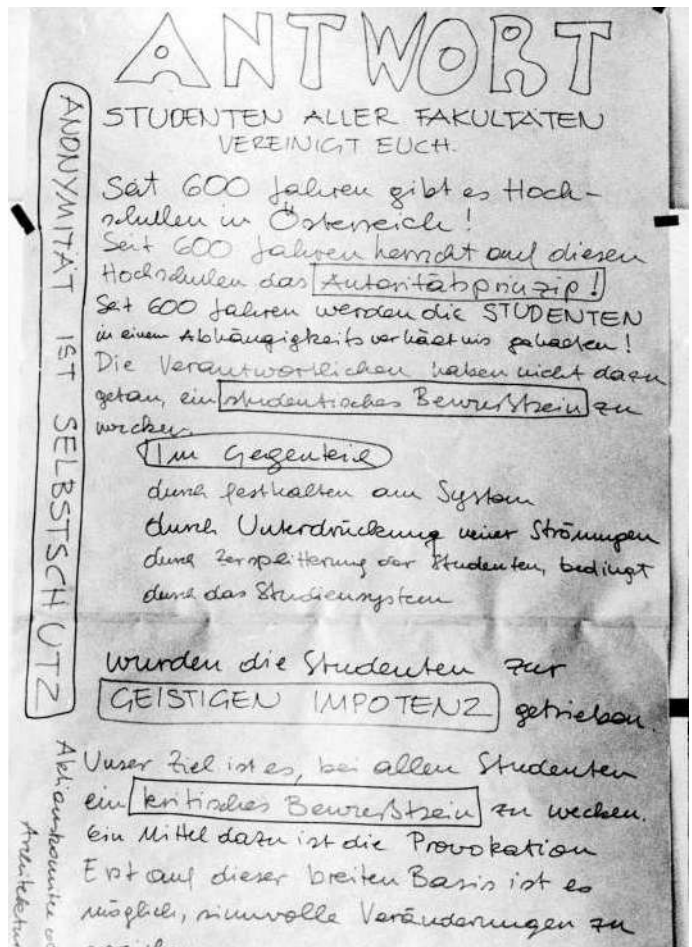 ANTWORT
STUDENTEN ALLER FAKULTÄTEN
VEREINIGT EUCH.
Seit 600 Jahren gibt es Hoch-
schulen in Österreich!
Seit 600 Jahren herrscht auf diesen
Hochschulen das Autoritätsprinzip!
Seit 600 Jahren werden die STUDENTEN
in einem Abhängigkeitsverhältnis gehalten!
Die Verantwortlichen haben nicht dazu
getan, ein studentisches Bewußtsein zu
wecken.
Im Gegenteil
durch festhalten am System
durch Unterdrückung neuer Strömungen
durch Zersplitterung der Studenten, bedingt
durch das Studiensystem
wurden die Studenten zur
GEISTIGEN IMPOTENZ getrieben.
Unser Ziel ist es, bei allen Studenten
ein kritisches Bewußtsein zu wecken.
Ein Mittel dazu ist die Provokation
Erst auf dieser breiten Basis ist es
möglich, sinnvolle Veränderungen zu
ANONYMITÄT IST SELBSTSCHUTZ
Aktionskomitee
Architektur